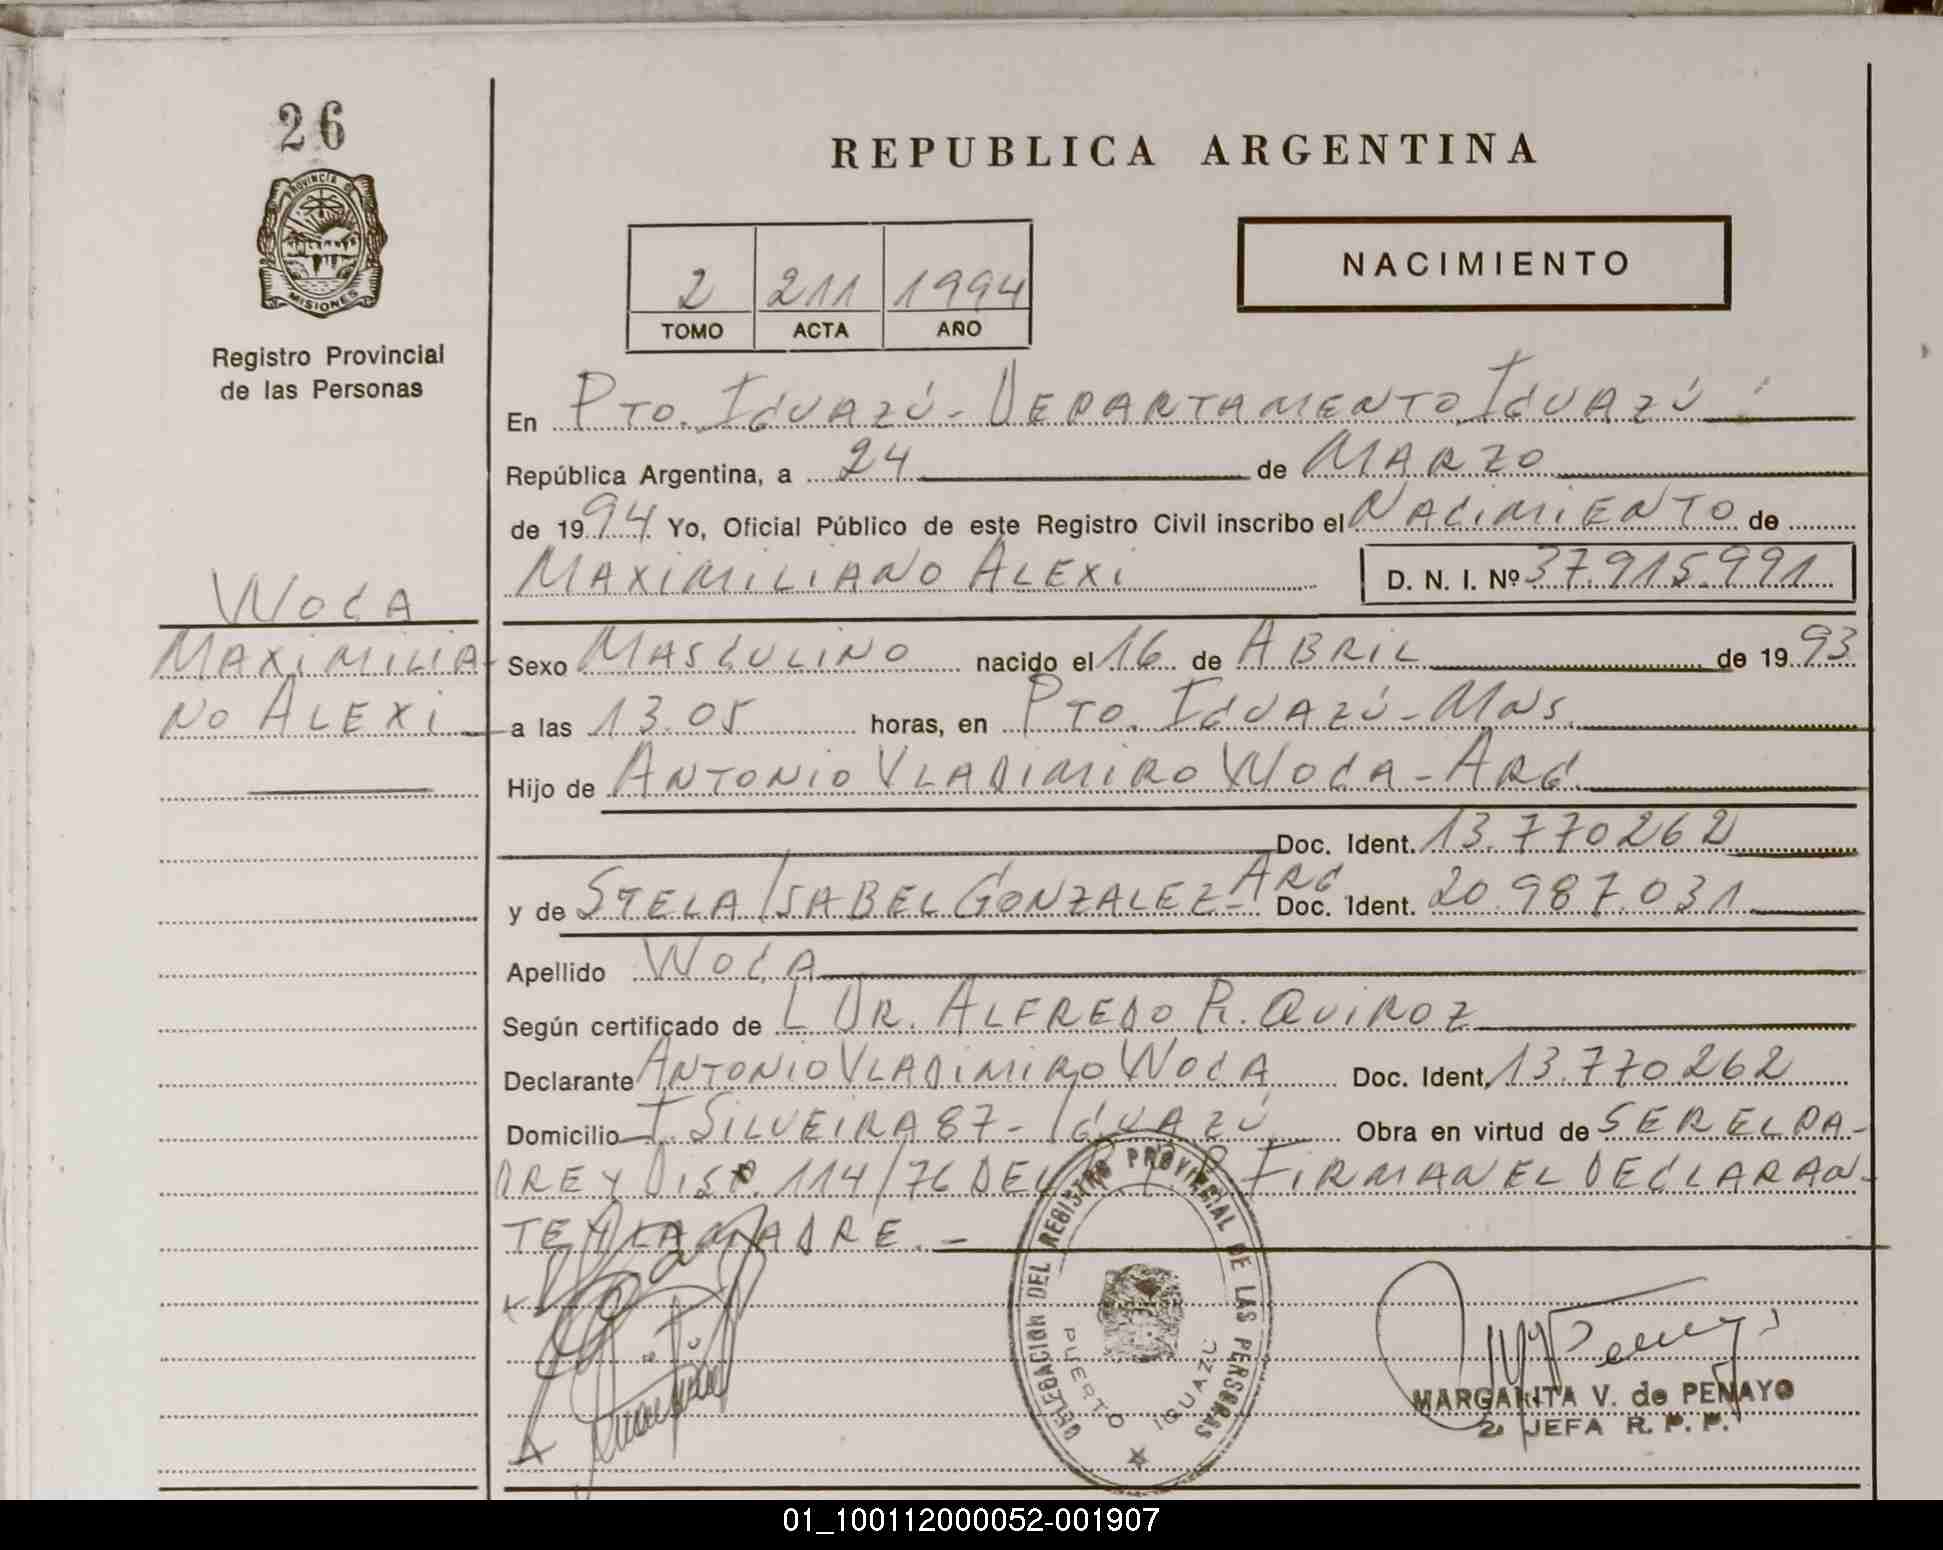 26
PROVINCIA DE
MISIONES
Registro Provincial
de las Personas
REPUBLICA ARGENTINA
2 211 1994
TOMO ACTA AÑO
NACIMIENTO
En PTO. IGUAZÚ - DEPARTAMENTO IGUAZÚ
República Argentina, a 24 de MARZO
de 1994 Yo, Oficial Público de este Registro Civil inscribo el NACIMIENTO de
MAXIMILIANO ALEXI D. N. I. Nº 37.915.991
WOCA
MAXIMILIA-
NO ALEXI
Sexo MASCULINO nacido el 16 de ABRIL de 1993
a las 13.05 horas, en PTO. IGUAZÚ - MNS.
Hijo de ANTONIO VLADIMIRO WOCA - ARG.
Doc. Ident. 13.770262
y de STELA ISABEL GONZALEZ - ARG Doc. Ident. 20.987.031
Apellido WOCA
Según certificado de L DR. ALFREDO R. QUIROZ
Declarante ANTONIO VLADIMIRO WOCA Doc. Ident. 13.770.262
Domicilio T. SILVEIRA 87 - IGUAZÚ Obra en virtud de SER EL PA-
DRE Y DISP. 114/76 DEL R.P.P. FIRMAN EL DECLARAN-
TE Y LA MADRE. -
DELEGACION DEL REGISTRO PROVINCIAL DE LAS PERSONAS
PUERTO IGUAZU
MARGARITA V. de PENAYO
2. JEFA R. P. P.
01_100112000052-001907